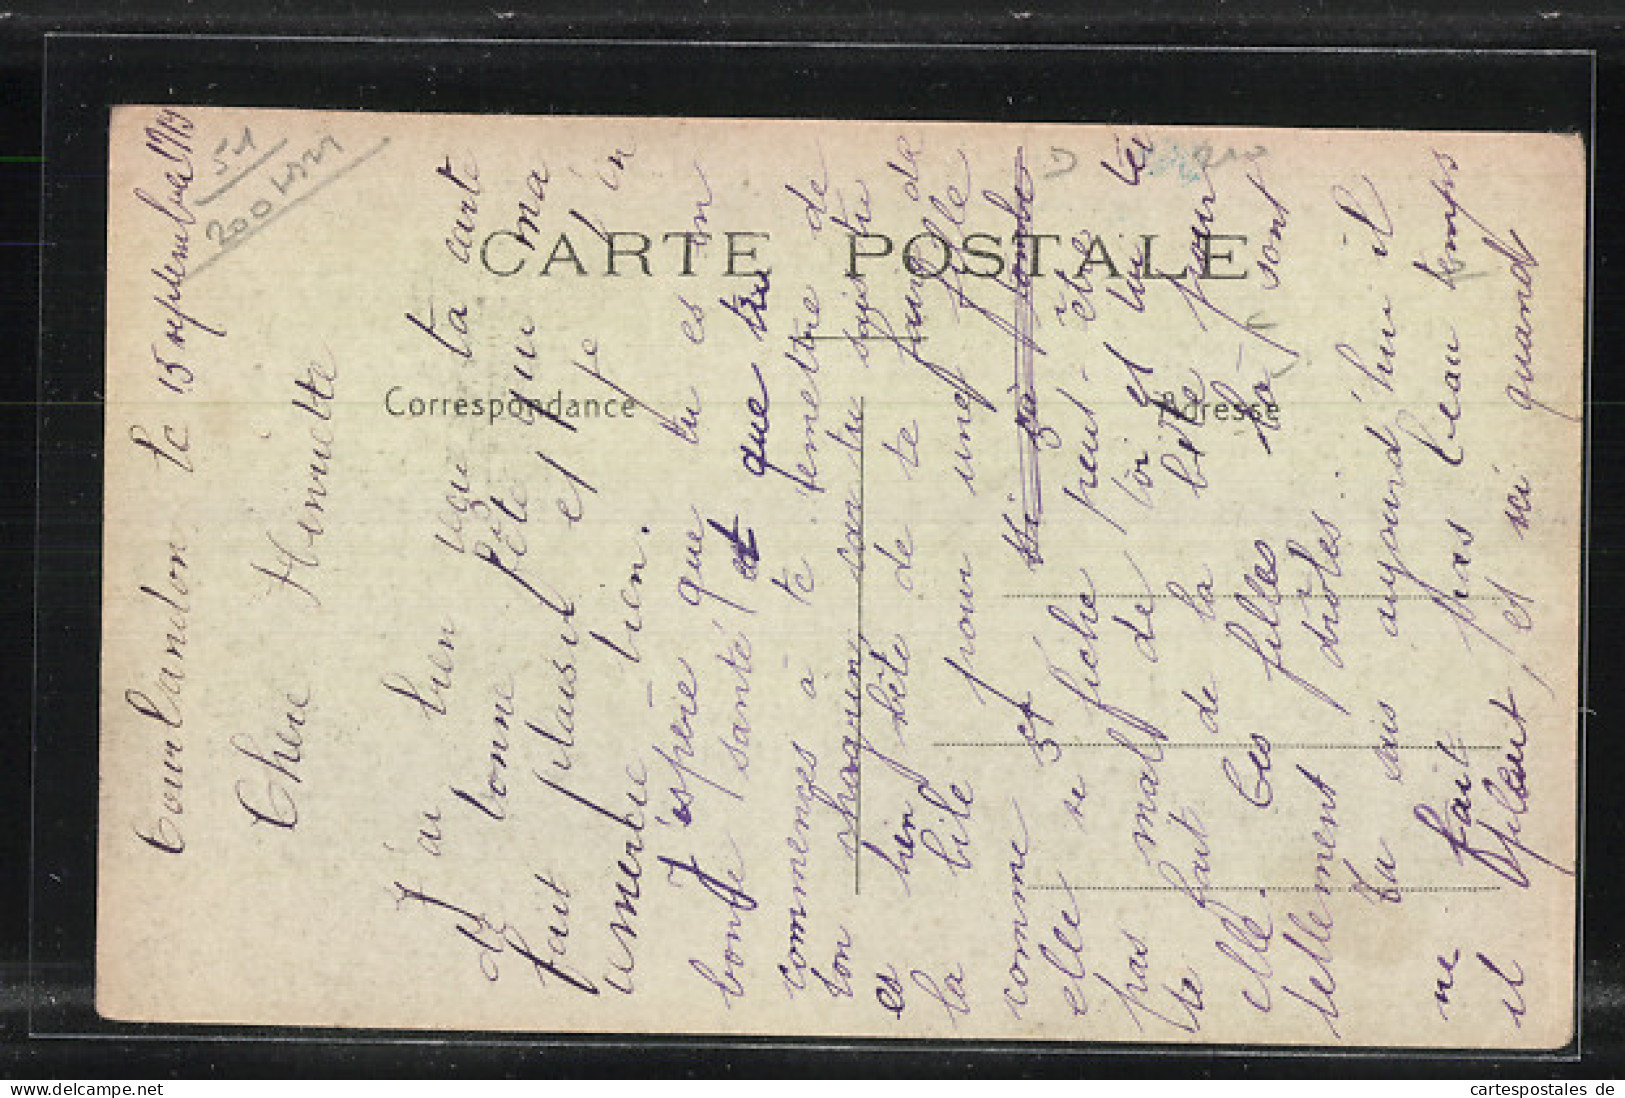 CARTE POSTALE
Correspondance
Adresse
51
200
Courlandon le 15 septembre 1919
Chère Ninnette
J'ai bien reçu ta carte
de bonne fête qui m'a
fait plaisir et je t'en
remercie bien.
J'espère que tu es en
bonne santé et que tu
commences à te remettre de
ton chagrin, car tu sais tu
es bien bête de te faire de
la bile pour une fille
comme
elle se fiche peut-être
pas mal de toi et toi tu
te fait de la bile pour
elle. Ces filles là sont
tellement drôles.
Tu sais aujourd'hui il
ne fait pas beau temps
il pleut, et ici quand
cartespostales de